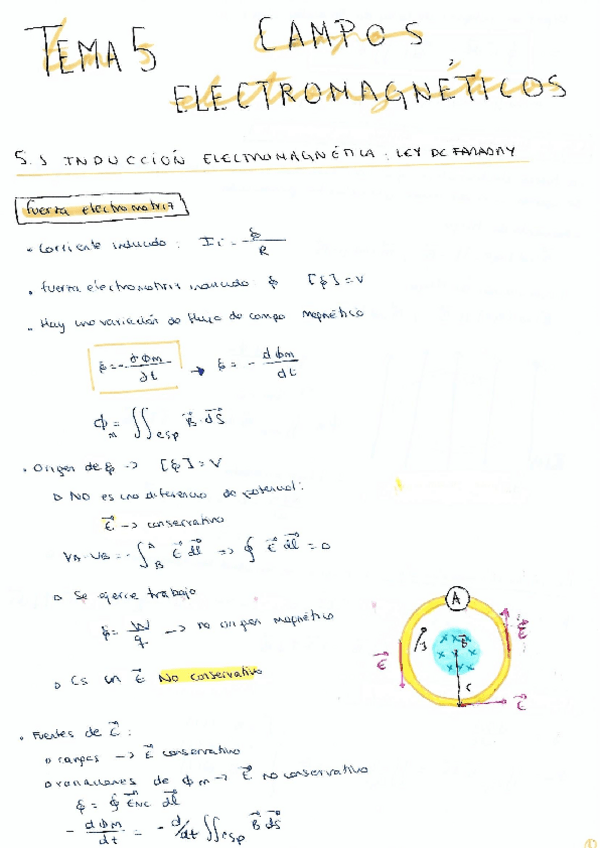 TEMA 5 CAMPOS
ELECTROMAGNÉTICOS
5.1 INDUCCIÓN ELECTROMAGNÉTICA: LEY DE FARADAY
fuerza electromotriz
• Corriente inducida: Ii = ξ/R
• fuerza electromotriz inducida ξ [ξ] = V
• Hay una variación de flujo de campo magnético
ξ = - dΦm/dt → ξ = - dΦm/dt
Φm = ∬esp B⃗ · dS⃗
• Origen de ξ -> [ξ] = V
▫ NO es una diferencia de potencial:
E⃗ -> conservativo
VA - VB = - ∫ᴬB E⃗ dl⃗ => ∮ E⃗ dl⃗ = 0
▫ Se ejerce trabajo
ξ = W/q -> no origen magnético
▫ Es un E⃗ No conservativo
• Fuentes de E⃗:
▫ cargas -> E⃗ conservativo
▫ variaciones de Φm -> E⃗ no conservativo
ξ = ∮ E⃗NC dl⃗
- dΦm/dt = - d/dt ∬esp B⃗ dS⃗
A
B⃗
E⃗
E⃗
E⃗
1